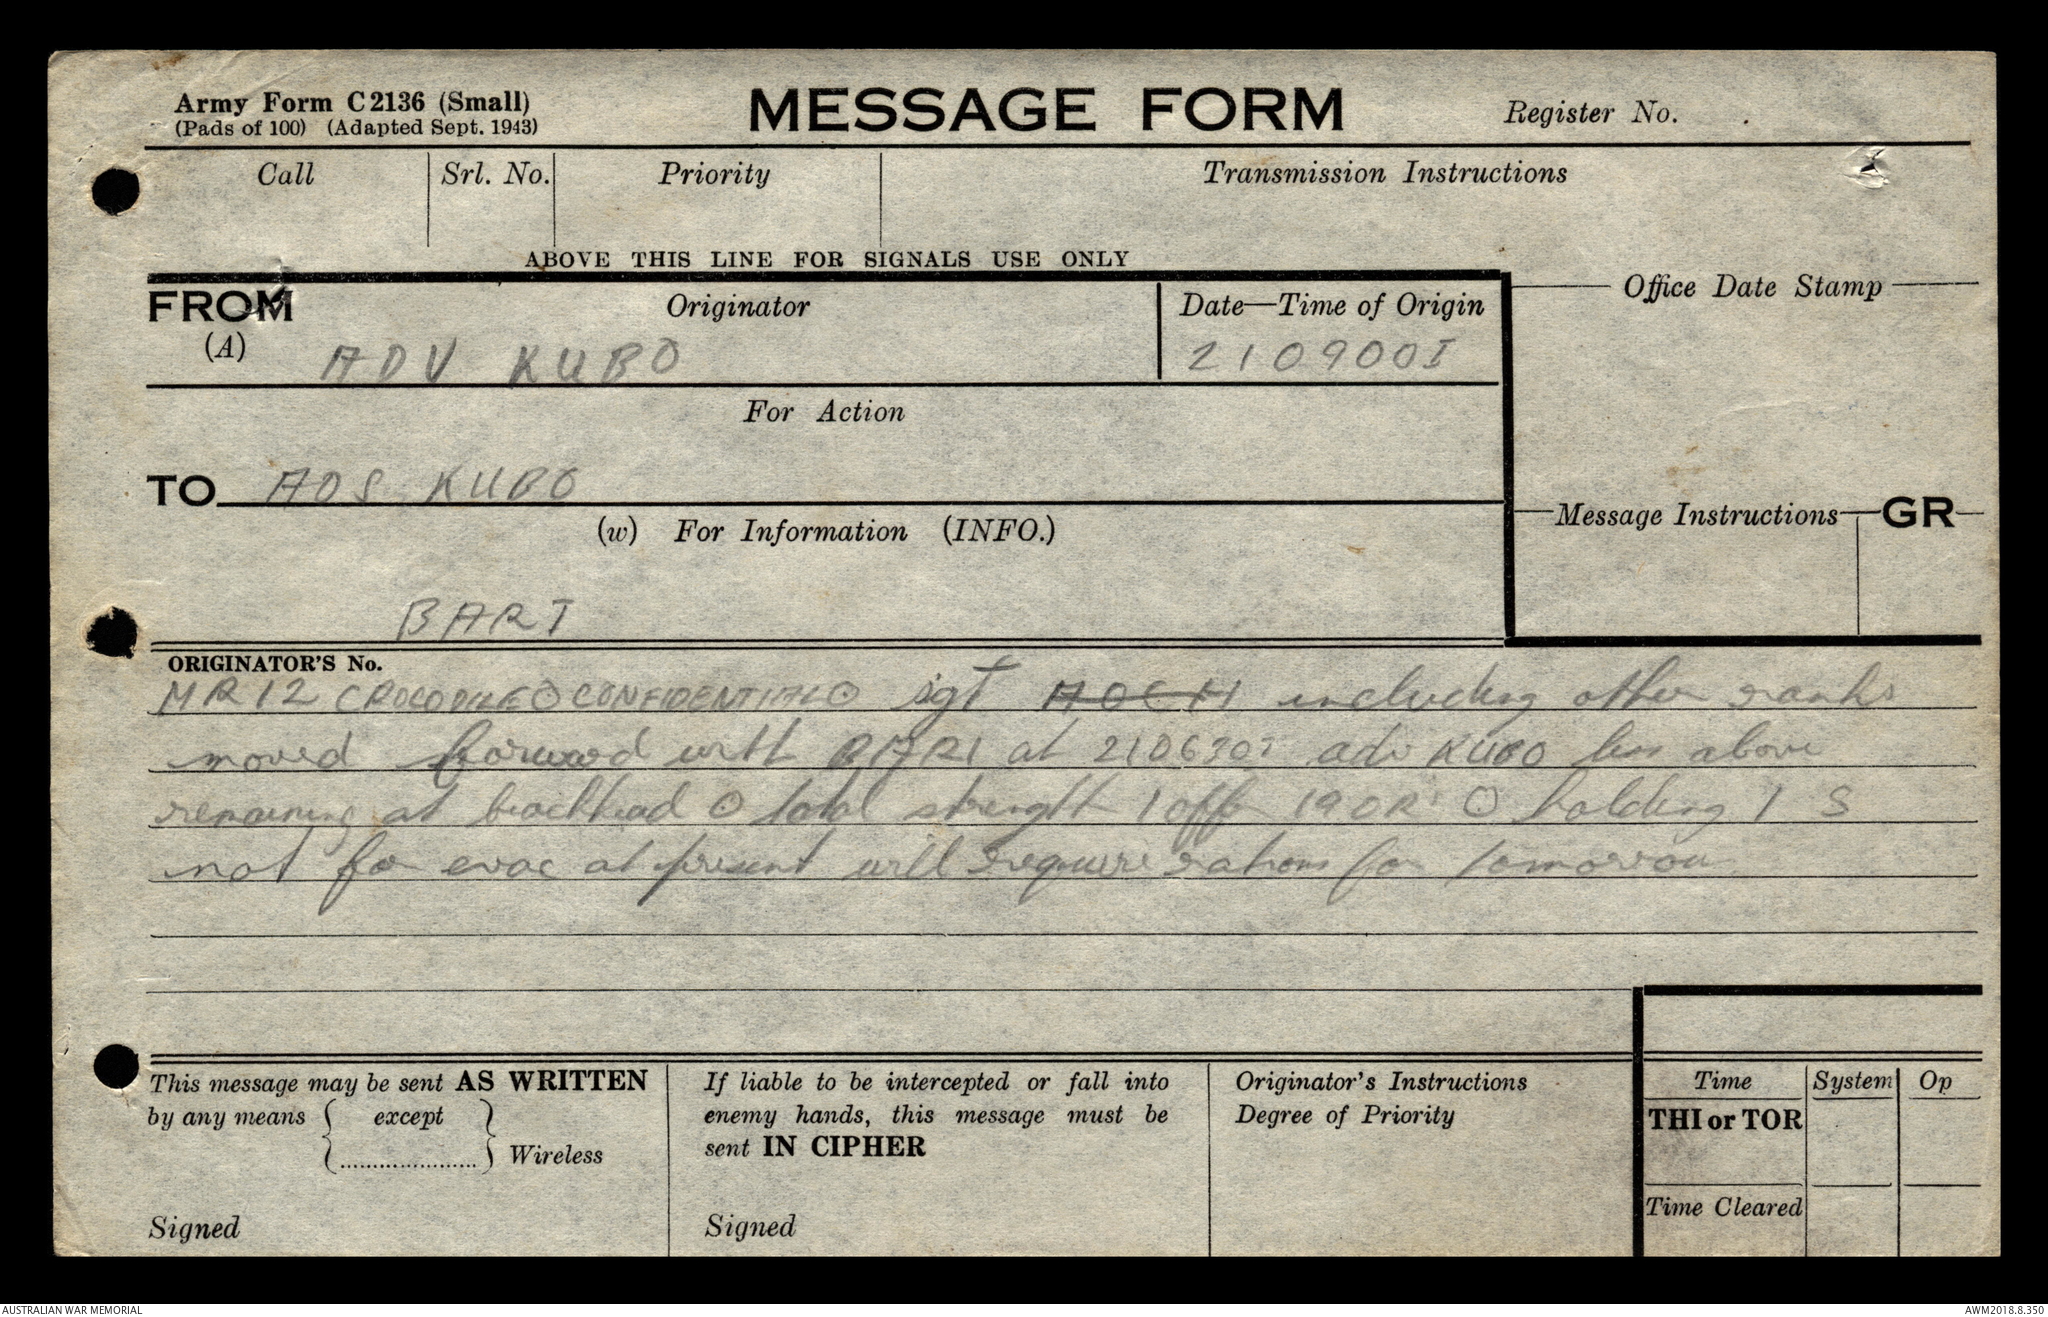 Army Form C2136 (Small)
(Pads of 100) (Adapted Sept. 1943)
MESSAGE FORM
Register No.
Call
Srl. No.
Priority
Transmission Instructions
ABOVE THIS LINE FOR SIGNALS USE ONLY
FROM
(A)
Originator
ADV KUBO
Date—Time of Origin
210900I
Office Date Stamp
For Action
TO ADS KUBO
(w) For Information (INFO.)
BARI
Message Instructions GR
ORIGINATOR'S No.
MR12 CROCODILE ⊙ CONFIDENTIAL ⊙ sgt including other ranks
moved forward with BARI at 210630I adv KUBO less above
remaining at beachhead ⊙ total strength 1 offr 19 OR ⊙ holding 1 S
not for evac at present will require rations for tomorrow
This message may be sent AS WRITTEN
by any means { except
..................... } Wireless
Signed
If liable to be intercepted or fall into
enemy hands, this message must be
sent IN CIPHER
Signed
Originator's Instructions
Degree of Priority
Time
System
Op
THI or TOR
Time Cleared
AUSTRALIAN WAR MEMORIAL
AWM2018.8.350